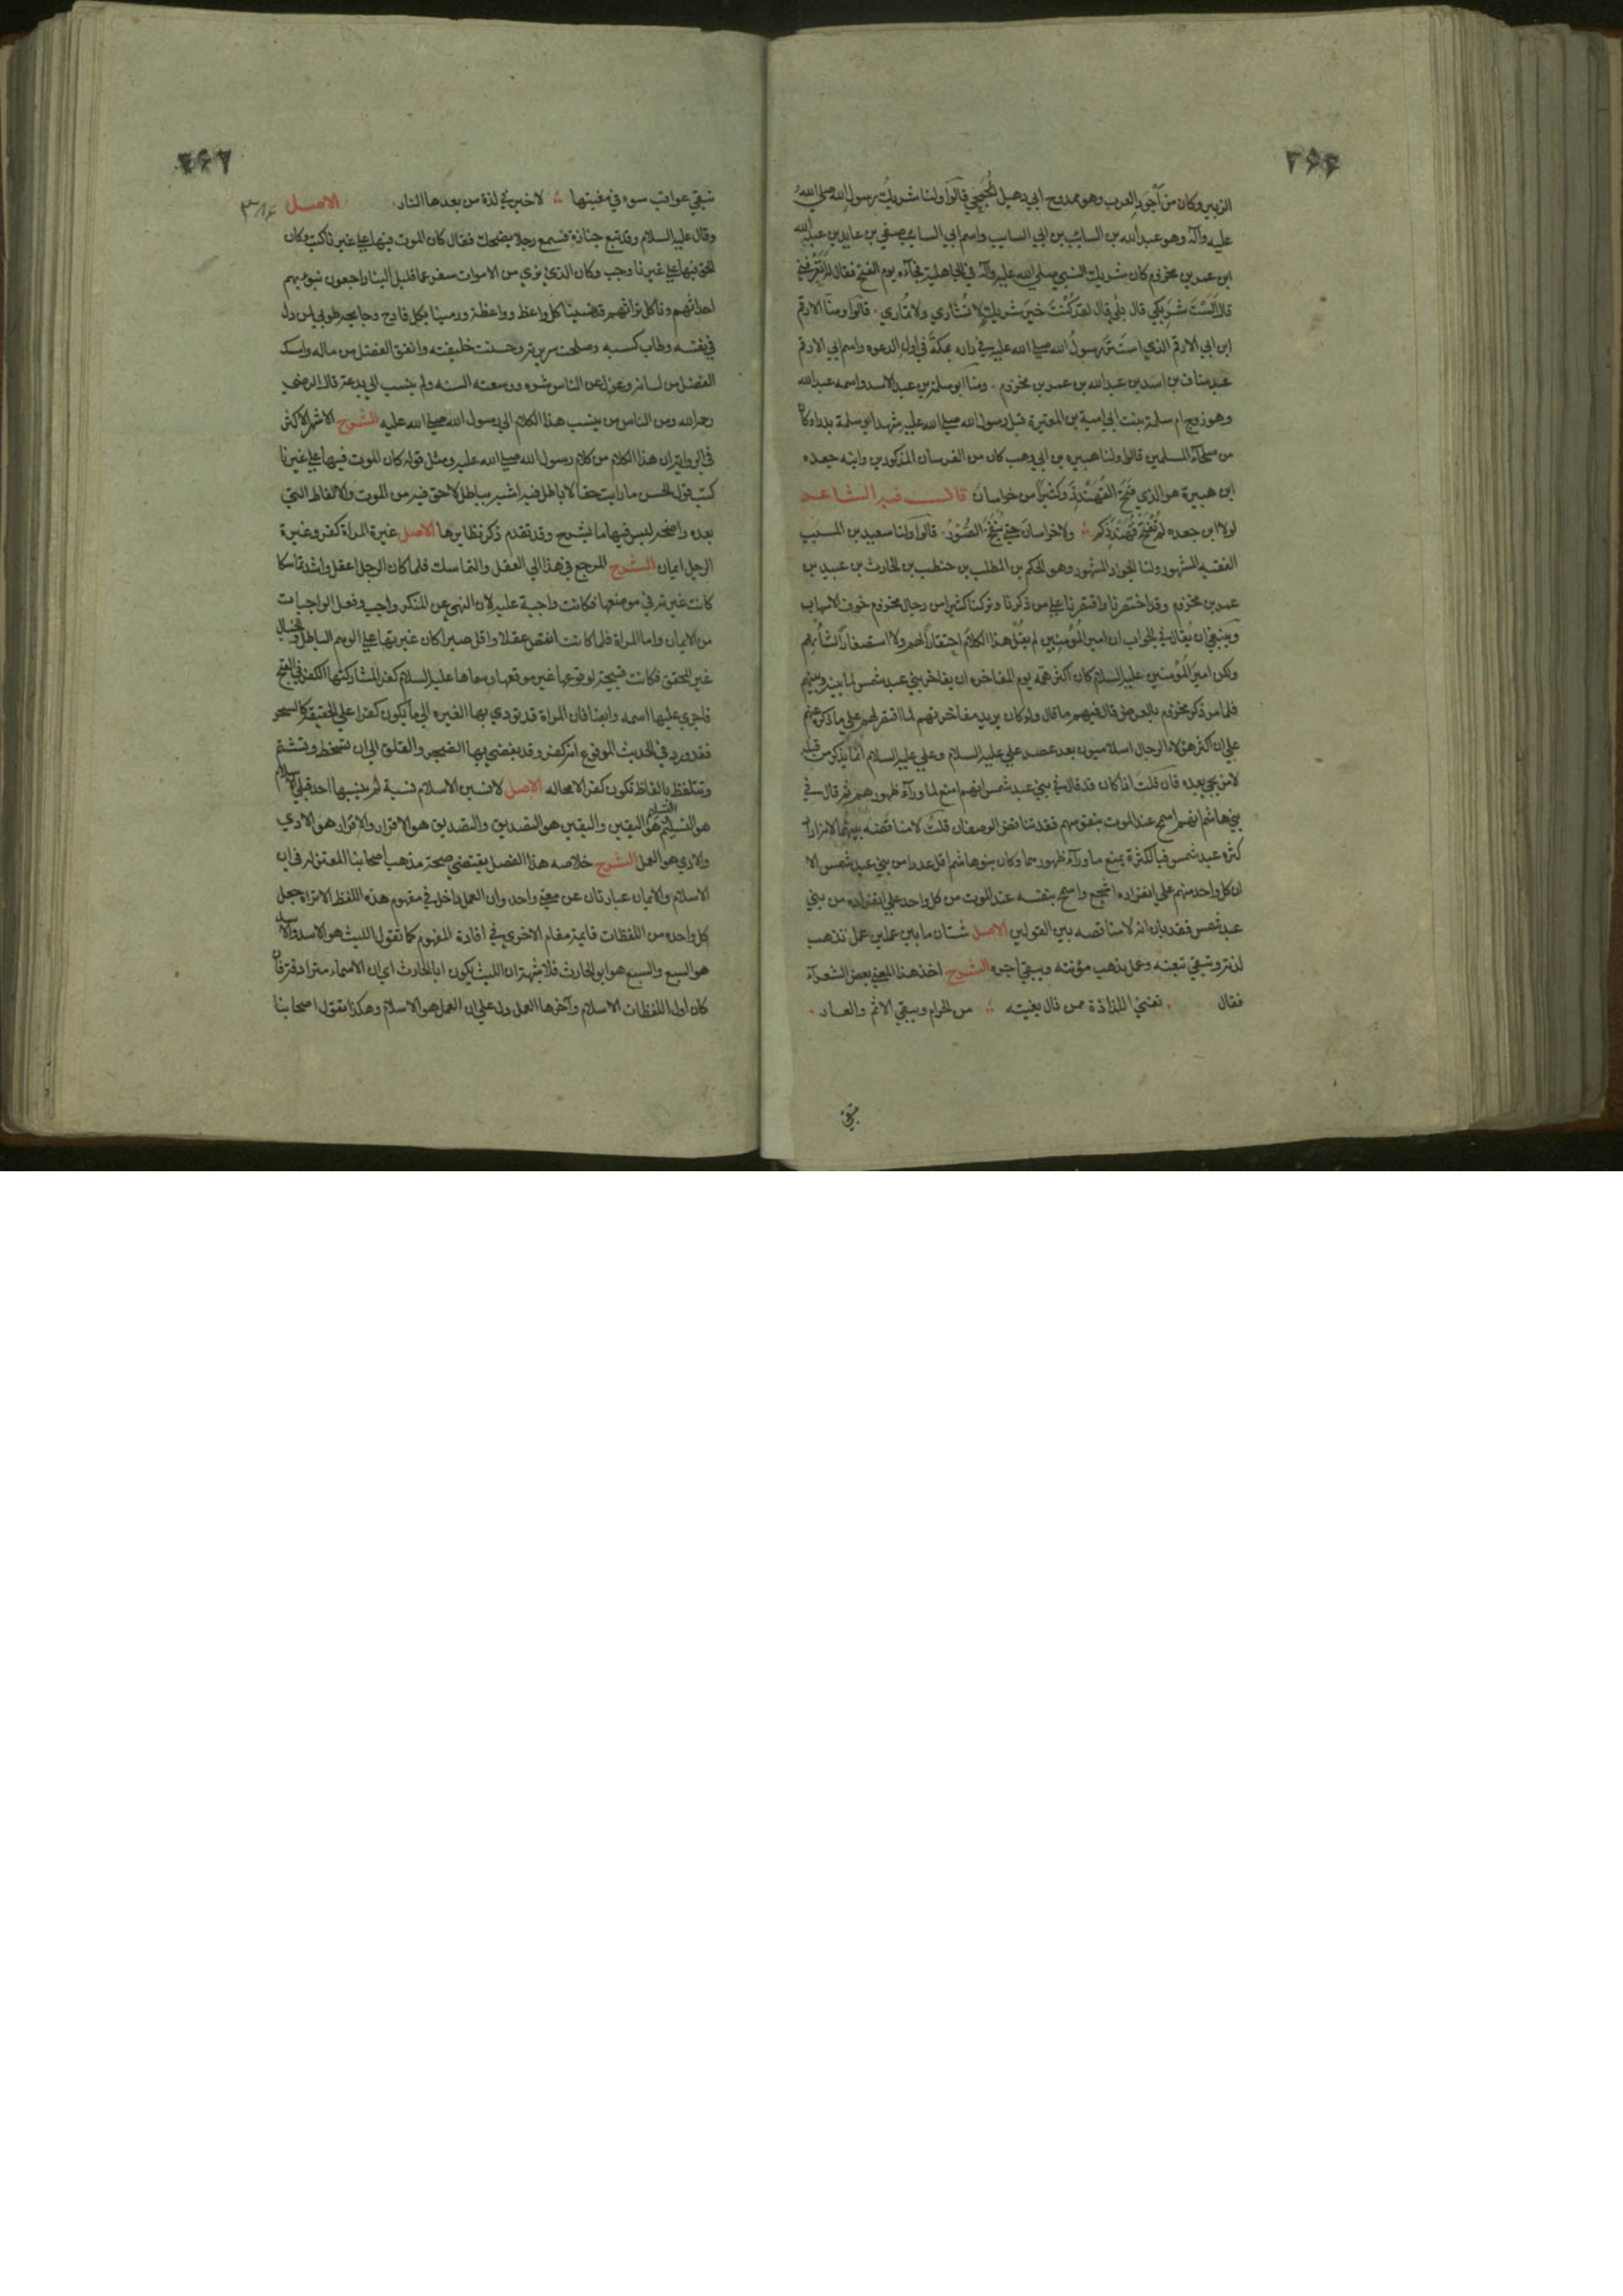 ۲۶۶
الزبير وكان من أجود العرب وهو ممدوح ابي دهبل الجمحي قالوا ولنا شريك رسول الله صلى الله
عليه وآله وهو عبدالله بن السائب بن ابي السايب واسم ابي السايب صيفي بن عايد بن عبدالله
ابن عمر بن مخزوم كان شريك النبي صلى الله عليه وآله في الجاهلية فجآءه يوم الفتح فقال له أتعرفني
قال ألست شريكي قال بلى قال لقد كنت خير شريك لا تشاري ولا تماري . قالوا ومنا الارقم
ابن ابي الارقم الذي استتر رسول الله صلى الله عليه في داره بمكة في اول الدعوه واسم ابي الارقم
عبد مناف بن اسد بن عبدالله بن عمر بن مخزوم . ومنا ابو سلمة بن عبد الاسد واسمه عبدالله
وهو زوج ام سلمة بنت ابي امية بن المغيرة قبل رسول الله صلى الله عليه شهد ابو سلمة بدرا وكان
من صلحآء المسلمين قالوا ولنا هبيره بن ابي وهب كان من الفرسان المذكورين وابنه جعده
ابن هبيرة هو الذي فتح القهندز وكثيرا من خراسان قال فيه الشاعر
لولا ابن جعده لم تفتح قهندزكم ولا خراسان حتى ينفخ الصور . قالوا ولنا سعيد بن المسيب
الفقيه المشهور ولنا الجواد المشهور وهو الحكم بن المطلب بن حنطب بن الحارث بن عبيد بن
عمر بن مخزوم وقد اختصرنا واقتصرنا على من ذكرنا وتركنا كثيرا من رجال مخزوم خوف الاسهاب
وينبغي ان يقال في الجواب ان امير المؤمنين لم يقل هذا الكلام احتقارا لهم ولا استصغارا لشأنهم
ولكن امير المؤمنين عليه السلام كان اكثر همه يوم المفاخره ان يفاخر بني عبد شمس لما بينه وبينهم
فلما مر ذكر مخزوم بالعرض قال فيهم ما قال ولو كان يريد مفاخرتهم لما اقتصر لهم على ما ذكره عنهم
على ان اكثر هؤلاء الرجال اسلاميون بعد عصر علي عليه السلام وعلي عليه السلام انما يذكر من قبله
لا من يجي بعده فان قلت اذا كان قد قال في بني عبد شمس انهم امنع لما ورآء ظهورهم ثم قال في
بني هاشم انهم اسمح عند الموت بنفوسهم فقد تناقض الوصفان قلت لا مناقضه بينهما لانه اراد
كثرة عبد شمس فبالكثرة يمنع ما ورآء ظهورها وكان بنو هاشم اقل عددا من بني عبد شمس الا
ان كل واحد منهم على انفراده اشجع واسمح بنفسه عند الموت من كل واحد على انفراده من بني
عبد شمس فقد بان انه لا مناقضه بين القولين الاصل شتان ما بين عملين عمل تذهب
لذته وتبقى تبعته وعمل يذهب مؤنته ويبقى اجره الشرح اخذ هذا المعنى بعض الشعرآء
فقال . تفنى اللذاذة ممن نال بغيته من الحرام ويبقى الاثم والعار .
تبقى
۲۶۷
تبقي عواقب سوء في مغبتها لا خير في لذة من بعدها النار . الاصل
وقال عليه السلام وقد تبع جنازة فسمع رجلا يضحك فقال كان الموت فيها على غيرنا كتب وكان
الحق فيها على غيرنا وجب وكان الذي نرى من الاموات سفر عما قليل الينا راجعون نبوئهم
اجداثهم وناكل تراثهم قد نسينا كل واعظ وواعظة ورمينا بكل فادح وجايحه طوبى لمن ذل
في نفسه وطاب كسبه وصلحت سريرته وحسنت خليقته وانفق الفضل من ماله وامسك
الفضل من لسانه وعزل عن الناس شره ووسعته السنه ولم ينسب الى بدعة قال الرضي
رحمه الله ومن الناس من ينسب هذا الكلام الى رسول الله صلى الله عليه الشرح الاشهر الاكثر
في الرواية ان هذا الكلام من كلام رسول الله صلى الله عليه ومثل قوله كان الموت فيها على غيرنا
كتب قول الحسن ما رايت حقا لا باطل فيه اشبه بباطل لا حق فيه من الموت والالفاظ التي
بعده واضحه ليس فيها ما يشرح وقد تقدم ذكر نظايرها الاصل غيرة المراة كفر وغيرة
الرجل ايمان الشرح المرجع في هذا الى العقل والتماسك فلما كان الرجل اعقل واشد تماسكا
كانت غيرته في موضعها فكانت واجبة عليه لان النهي عن المنكر واجب وفعل الواجبات
من الايمان واما المراة فلما كانت انقص عقلا واقل صبرا كان غيرتها على الوهم الباطل والخيال
غير المحقق فكانت قبيحة لوقوعها غير موقعها وسماها عليه السلام كفرا لمشاركتها الكفر في القبح
فاجري عليها اسمه وايضا فان المراة قد تودي بها الغيره الى ما يكون كفرا على الحقيقة كالسحر
فقد ورد في الحديث المرفوع انه كفر وقد يفضي بها الضجر والقلق الى ان تسخط وتشتم
وتتلفظ بالفاظ تكون كفرا لا محاله الاصل لانسبن الاسلام نسبة لم ينسبها احد قبلي الاسلام
هو التسليم والتسليم هو اليقين واليقين هو التصديق والتصديق هو الاقرار والاقرار هو الادي
والادي هو العمل الشرح خلاصه هذا الفصل يقتضي صحة مذهب اصحابنا المعتزله في ان
الاسلام والايمان عبارتان عن معنى واحد وان العمل داخل في مفهوم هذه اللفظ الا تراه جعل
كل واحده من اللفظات قايمة مقام الاخرى في افادة المفهوم كما تقول الليث هو الاسد والاسد
هو السبع والسبع هو ابو الحارث فلا شبهة ان الليث يكون ابا الحارث اي ان الاسماء مترادفة فاذا
كان اول اللفظات الاسلام وآخرها العمل دل على ان العمل هو الاسلام وهكذا يقول اصحابنا